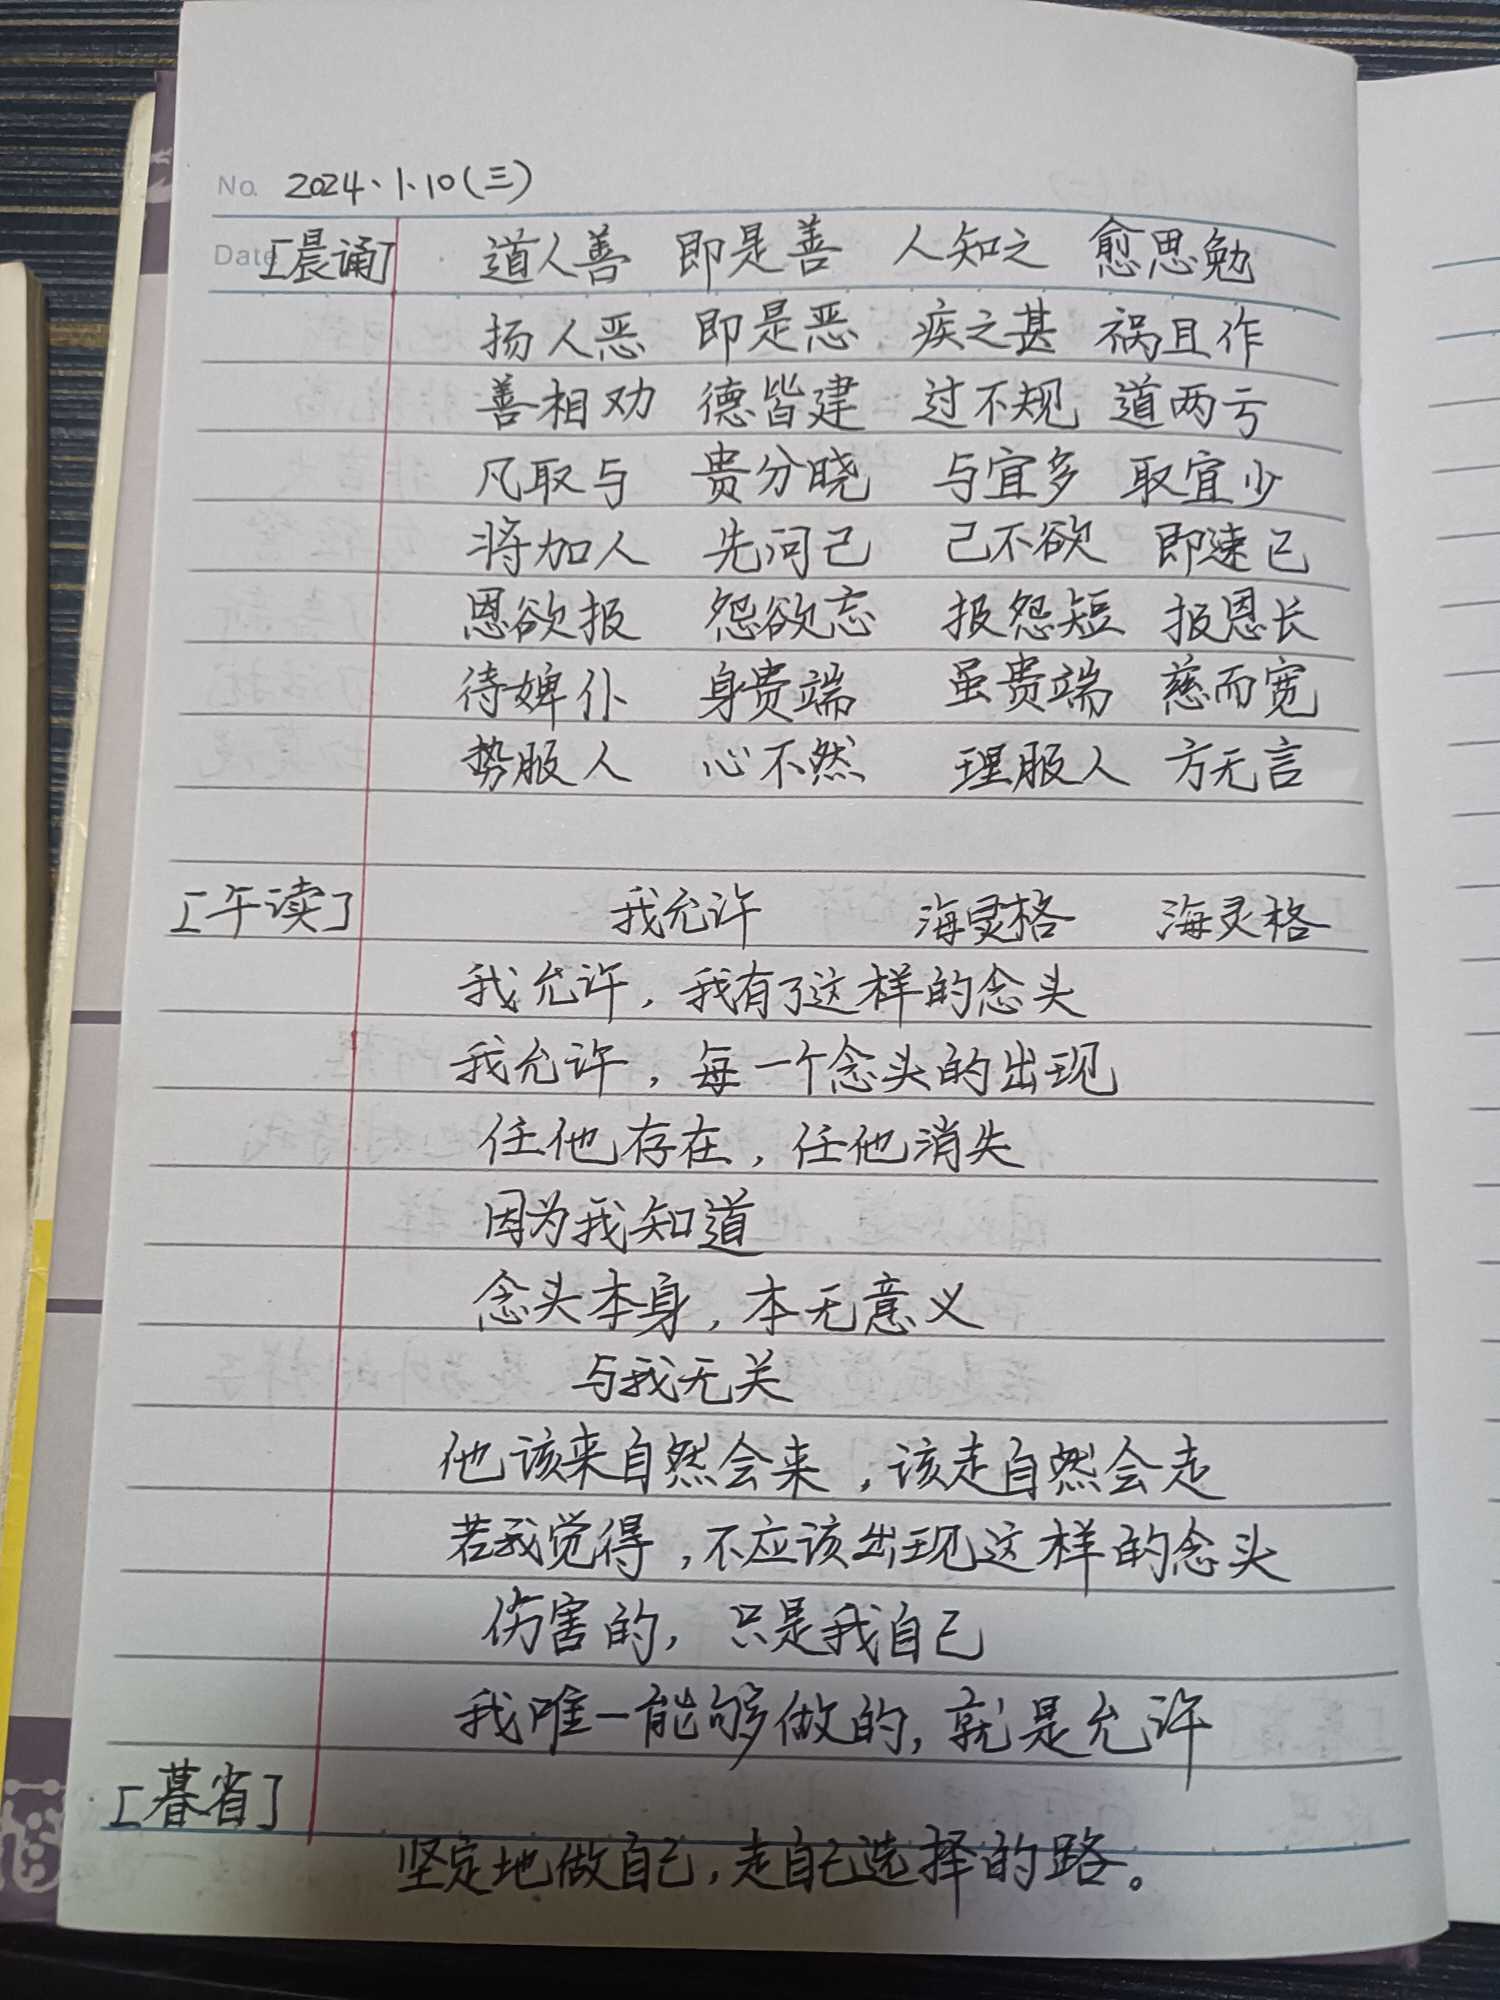 No. 2024.1.10(三)
Date [晨诵] 道人善 即是善 人知之 愈思勉
扬人恶 即是恶 疾之甚 祸且作
善相劝 德皆建 过不规 道两亏
凡取与 贵分晓 与宜多 取宜少
将加人 先问己 己不欲 即速已
恩欲报 怨欲忘 报怨短 报恩长
待婢仆 身贵端 虽贵端 慈而宽
势服人 心不然 理服人 方无言
[午读] 我允许 海灵格 海灵格
我允许，我有了这样的念头
我允许，每一个念头的出现
任他存在，任他消失
因为我知道
念头本身，本无意义
与我无关
他该来自然会来，该走自然会走
若我觉得，不应该出现这样的念头
伤害的，只是我自己
我唯一能够做的，就是允许
[暮省]
坚定地做自己，走自己选择的路。